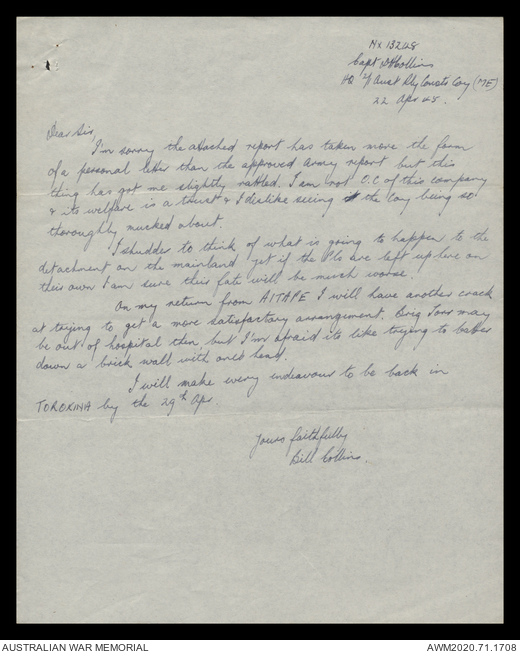 NX 13248
Capt Collins
HQ 2/1 Aust Rly Constr Coy (ME)
22 Apr 45.
Dear Sir,
I'm sorry the attached report has taken more the form
of a personal letter than the approved Army report but this
thing has got me slightly rattled. I am not O.C of this company
& its welfare is a trust & I dislike seeing the Coy being so
thoroughly mucked about.
I shudder to think of what is going to happen to the
detachment on the mainland yet if the Pls are left up here on
their own I am sure this fate will be much worse.
On my return from AITAPE I will have another crack
at trying to get a more satisfactory arrangement. Brig may
be out of hospital then, but I'm afraid its like trying to batter
down a brick wall with ones head.
I will make every endeavour to be back in
TOROKINA by the 29th Apr.
Yours faithfully
Bill Collins.
AUSTRALIAN WAR MEMORIAL
AWM2020.71.1708